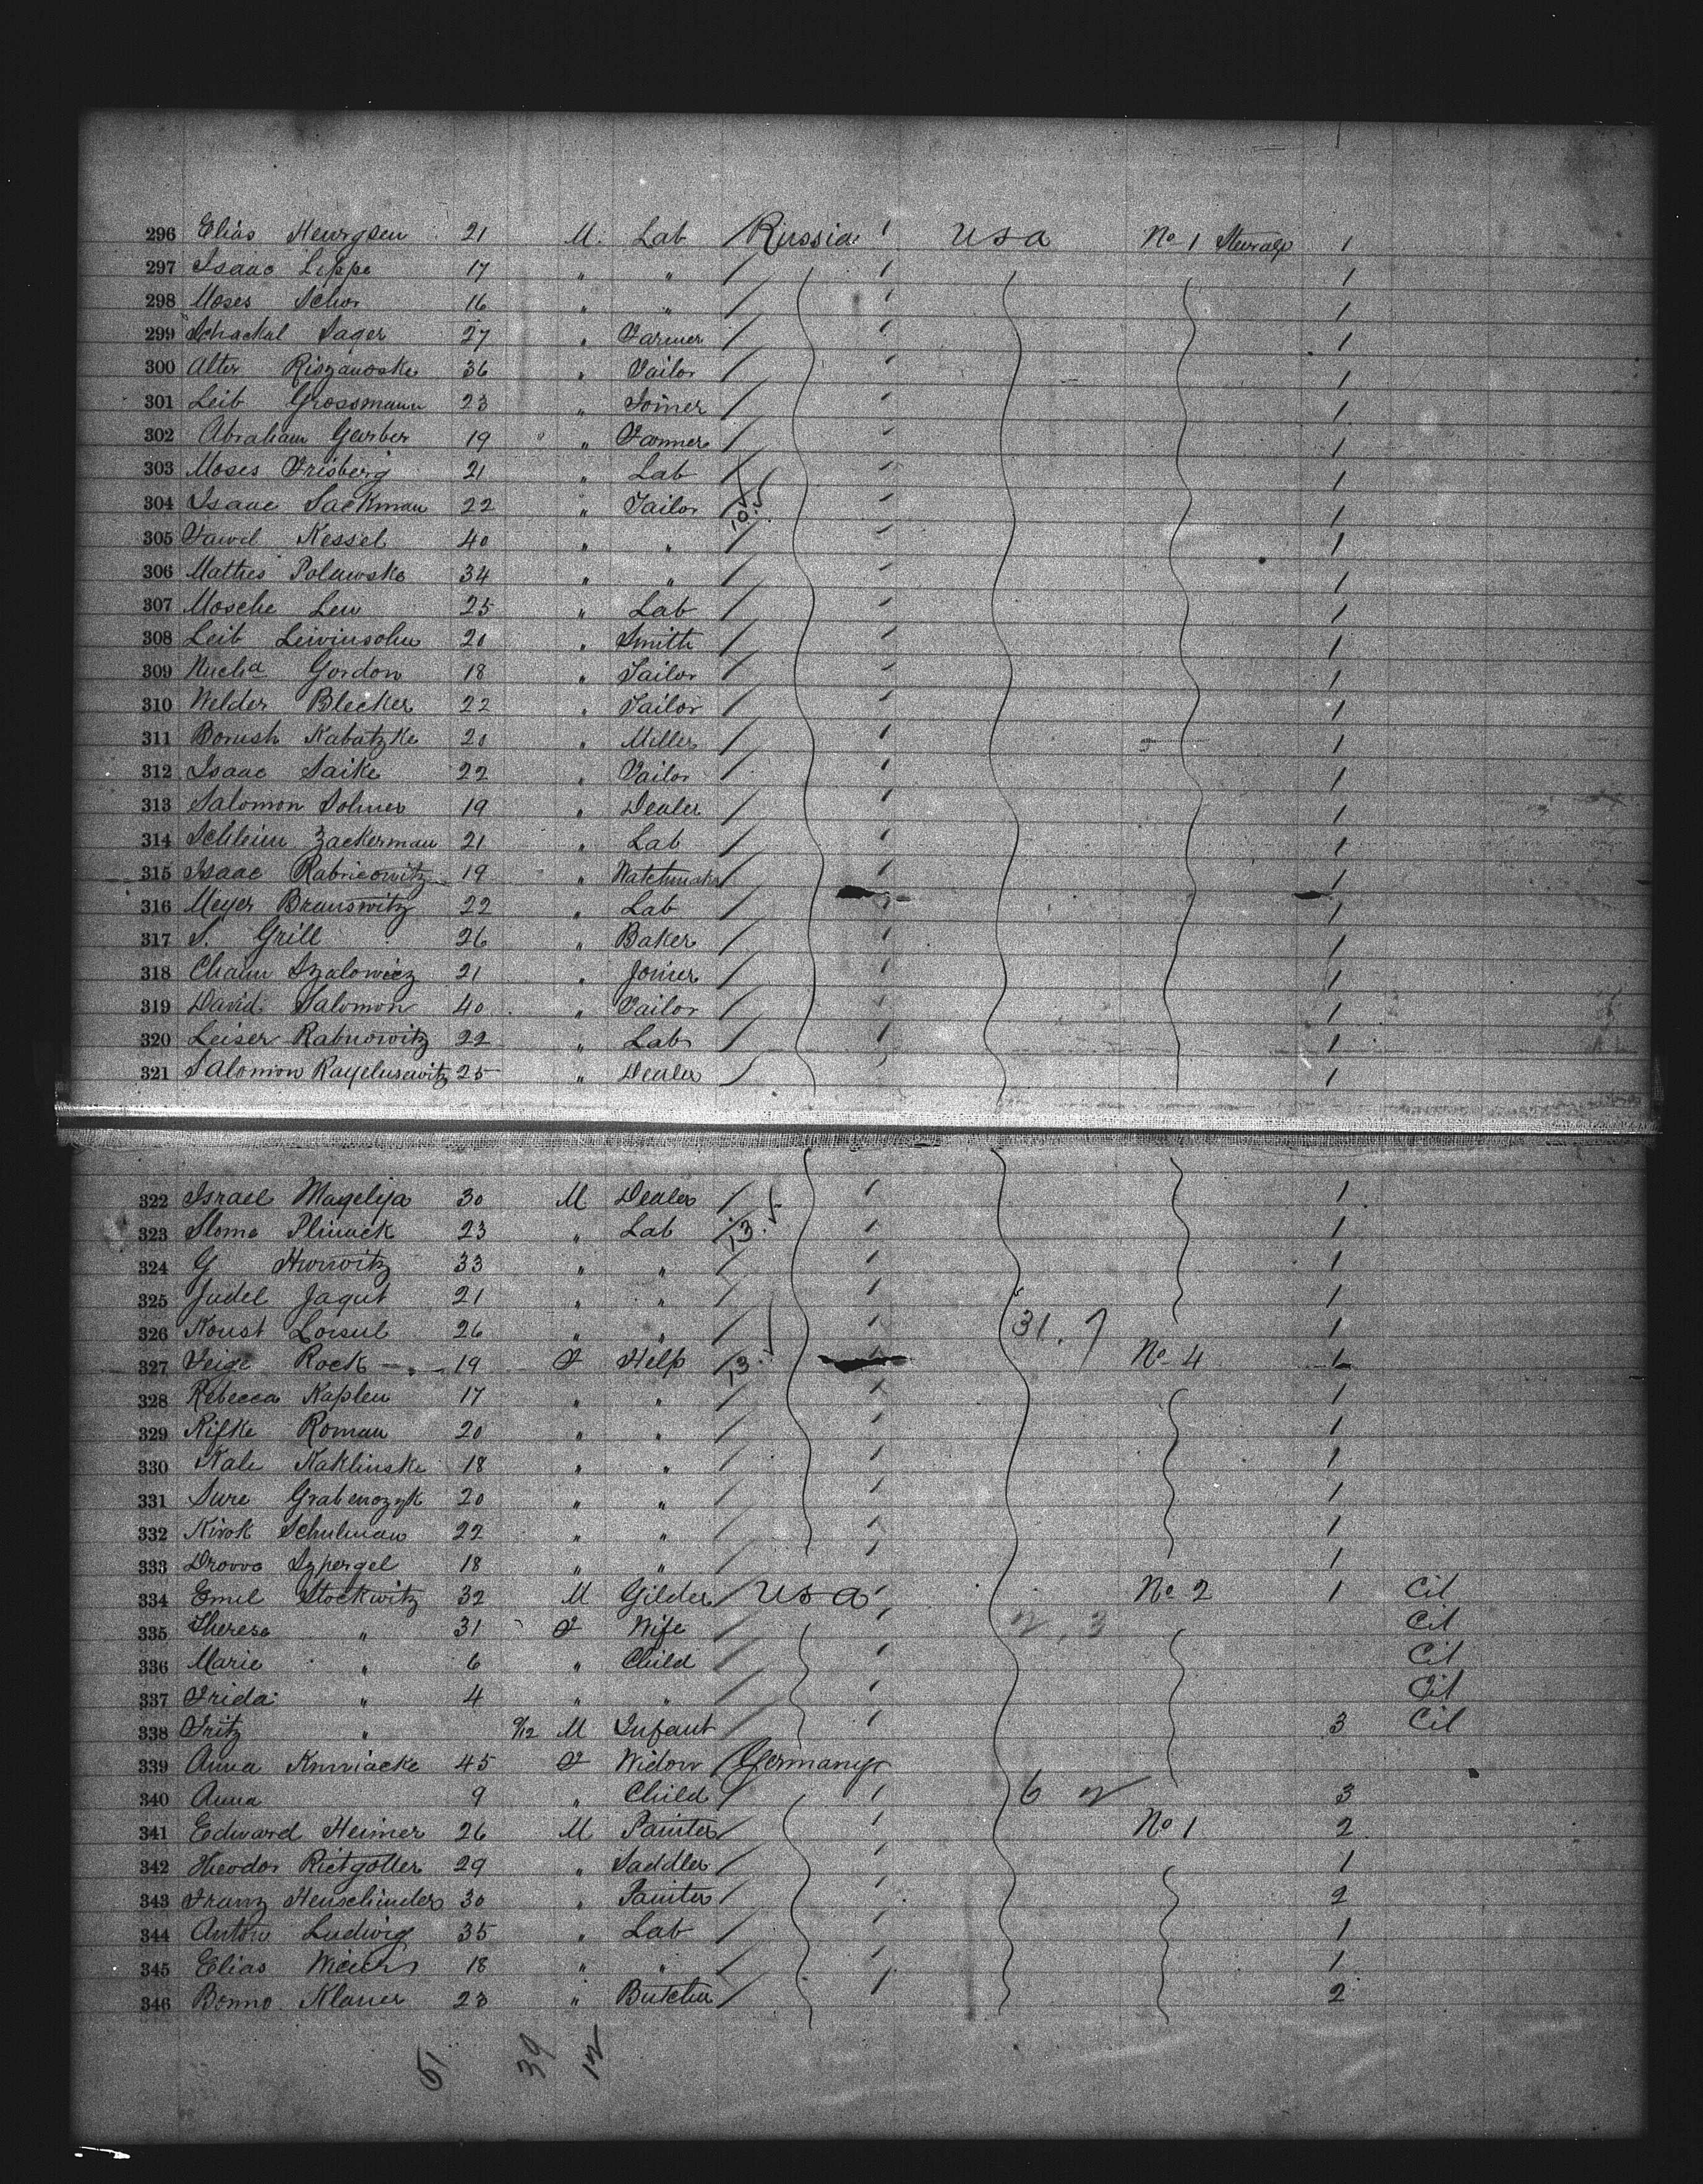 296 Elias Heurgsen 21 M. Lab / Russia 1 USA No 1 Sterage 1
297 Isaac Lippe 17 " " / 1 1
298 Moses Schor 16 " " / 1 1
299 Schackel Sager 27 " Farmer / 1 1
300 Alter Riszanoske 36 " Tailor / 1 1
301 Leib Grossmann 23 " Joiner / 1 1
302 Abraham Garber 19 " " Farmer / 1 1
303 Moses Frisberg 21 " Lab / 1 1
304 Isaac Sackman 22 " Tailor / 10. 1 1
305 Kessel 40 " " / 1 1
306 Mathis Polawske 34 " " / 1 1
307 Mosche Lew 25 " Lab / 1 1
308 Leib Leiviusohn 20 " Smith / 1 1
309 Gordon 18 " Tailor / 1 1
310 Welder Blecker 22 " Tailor / 1 1
311 Borush Kabatzke 20 " Miller / 1 1
312 Isaac Saike 22 " Tailor / 1 1
313 Salomon Solmer 19 " Dealer / 1 1
314 Schleim Zackerman 21 " Lab / 1 1
315 Isaac Rabricowitz 19 " Watchmaker / 1 1
316 Meyer Branswitz 22 " Lab / 1 1
317 S. Grill 26 " Baker / 1 1
318 Chaim Szalowicz 21 " Joiner / 1 1
319 David Salomon 40 " Tailor / 1 1
320 Leiser Rabnowitz 22 " Lab / 1 1
321 Salomon 25 " Dealer / 1 1
322 Israel Magelija 30 M Dealer / 1 1
323 Slomo 23 " Lab / 13. 1 1
324 G Hurwitz 33 " " / 1 1
325 Judel Jagut 21 " " / 1 1
326 26 " " / 1 31. 7 1
327 Feige Rock 19 F Help / 13. 1 No 4 1
328 Rebecca Kaplen 17 " " / 1 1
329 Rifke Roman 20 " " / 1 1
330 Kale Kaklinske 18 " " / 1 1
331 Sure Grabenozyk 20 " " / 1 1
332 Schulman 22 " " / 1 1
333 Szpergel 18 " " / 1 1
334 Emil Stockwitz 32 M Gilder / USA 1 No 2 1 Cit
335 Therese " 31 F Wife / 1 2, 3 Cit
336 Marie " 6 " Child / 1 Cit
337 Frida " 4 " " / 1 Cit
338 Fritz " 9/12 M Infant / 1 3 Cit
339 Anna Knwiacke 45 F Widow / Germany
340 Anna 9 " Child / 1 6 2 3
341 Edward Heimer 26 M Painter / 1 No 1 2
342 Theodor Rietgotter 29 " Saddler / 1 1
343 Franz Henschinder 30 " Painter / 1 2
344 Anton Ludwig 35 " Lab / 1 1
345 Elias 18 " " / 1 1
346 Benno Klaner 23 " Butcher / 1 2
51 39 12